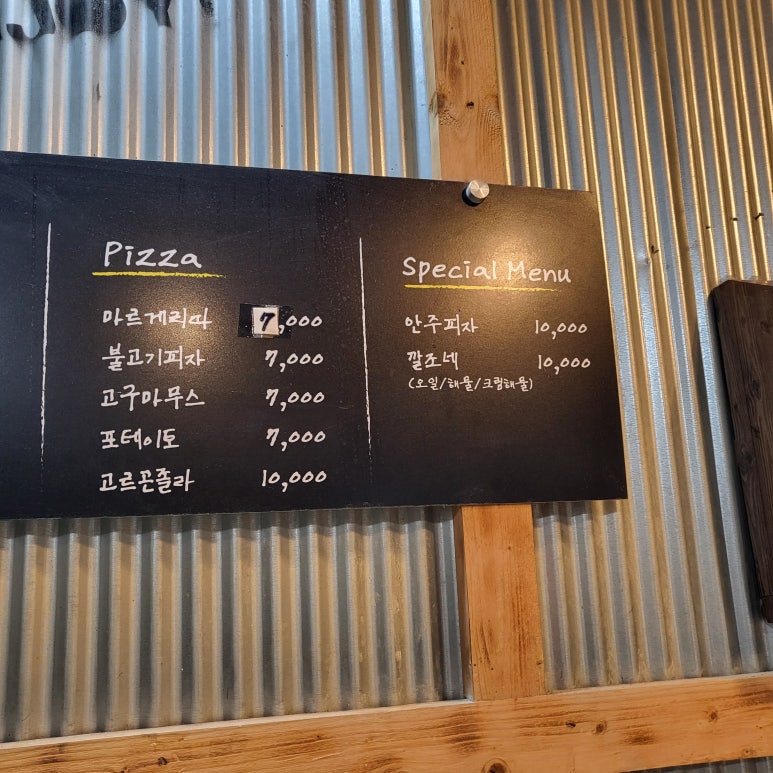 Pizza
마르게리따 7,000
불고기피자 7,000
고구마무스 7,000
포테이토 7,000
고르곤졸라 10,000
Special Menu
안주피자 10,000
깔조넥 10,000
(오일/해물/크림해물)